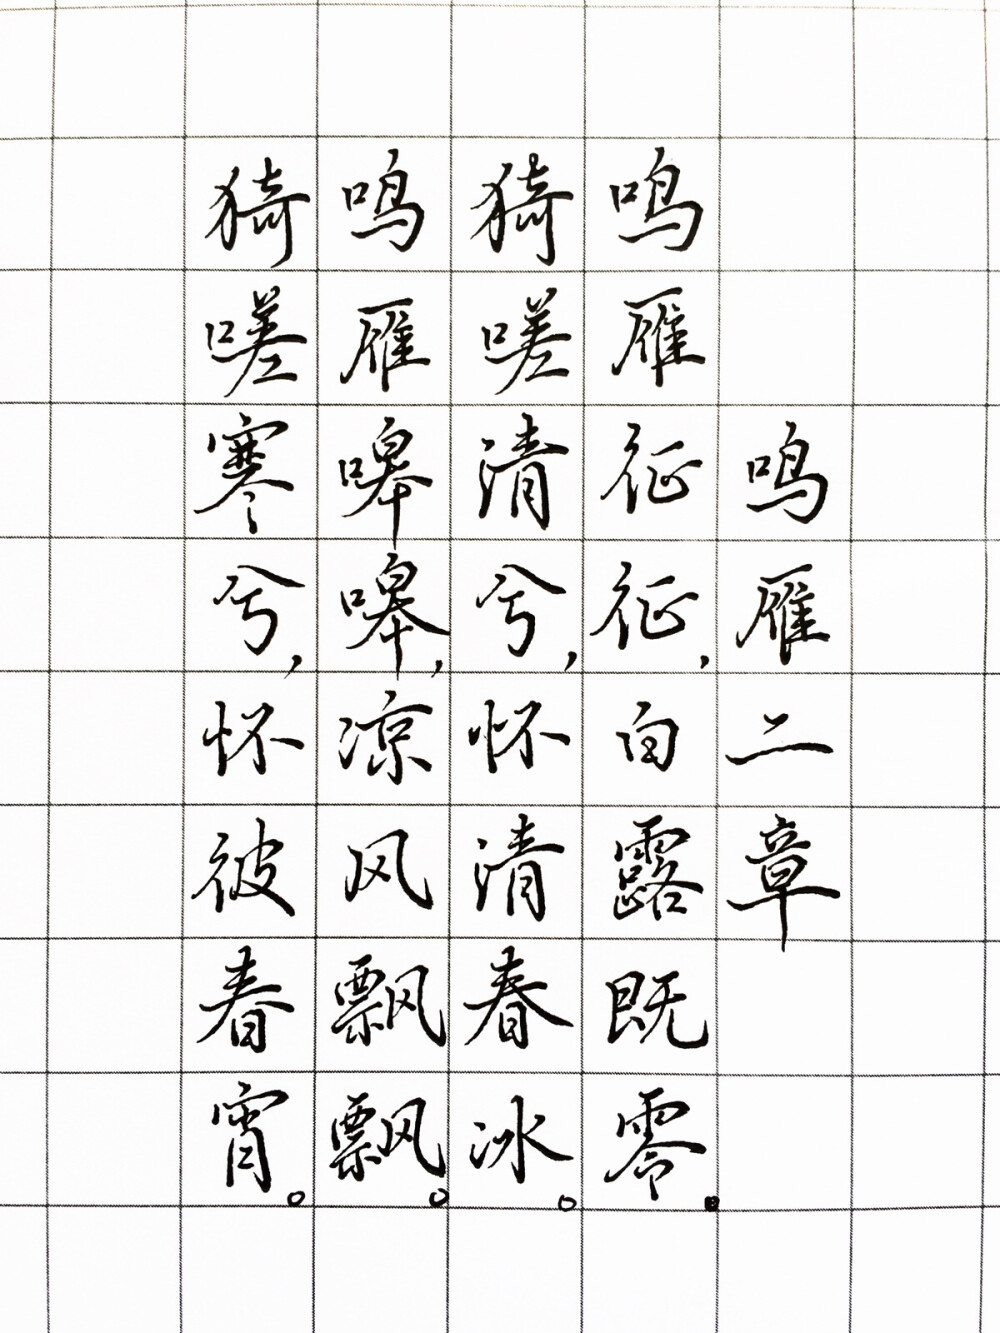 鸣雁二章
鸣雁征征，白露既零。
猗嗟清兮，怀清春冰。
鸣雁嗥嗥，凉风飘飘。
猗嗟寒兮，怀彼春宵。